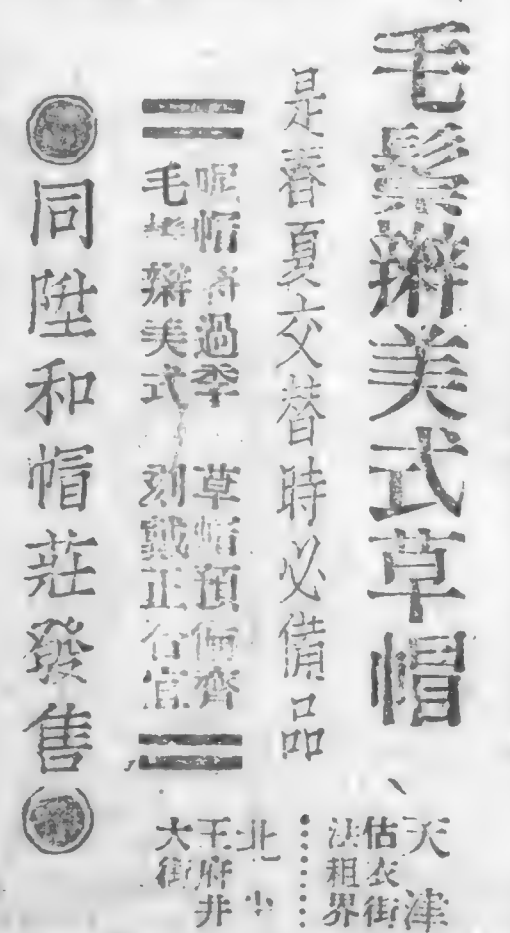 毛鬃辮美式草帽
是春夏交替時必備品
呢帽將過季 草帽預備齊
毛鬃辮美式 刻戴正合宜
同陞和帽莊發售
天津
估衣街
法租界
北
王府井
大街